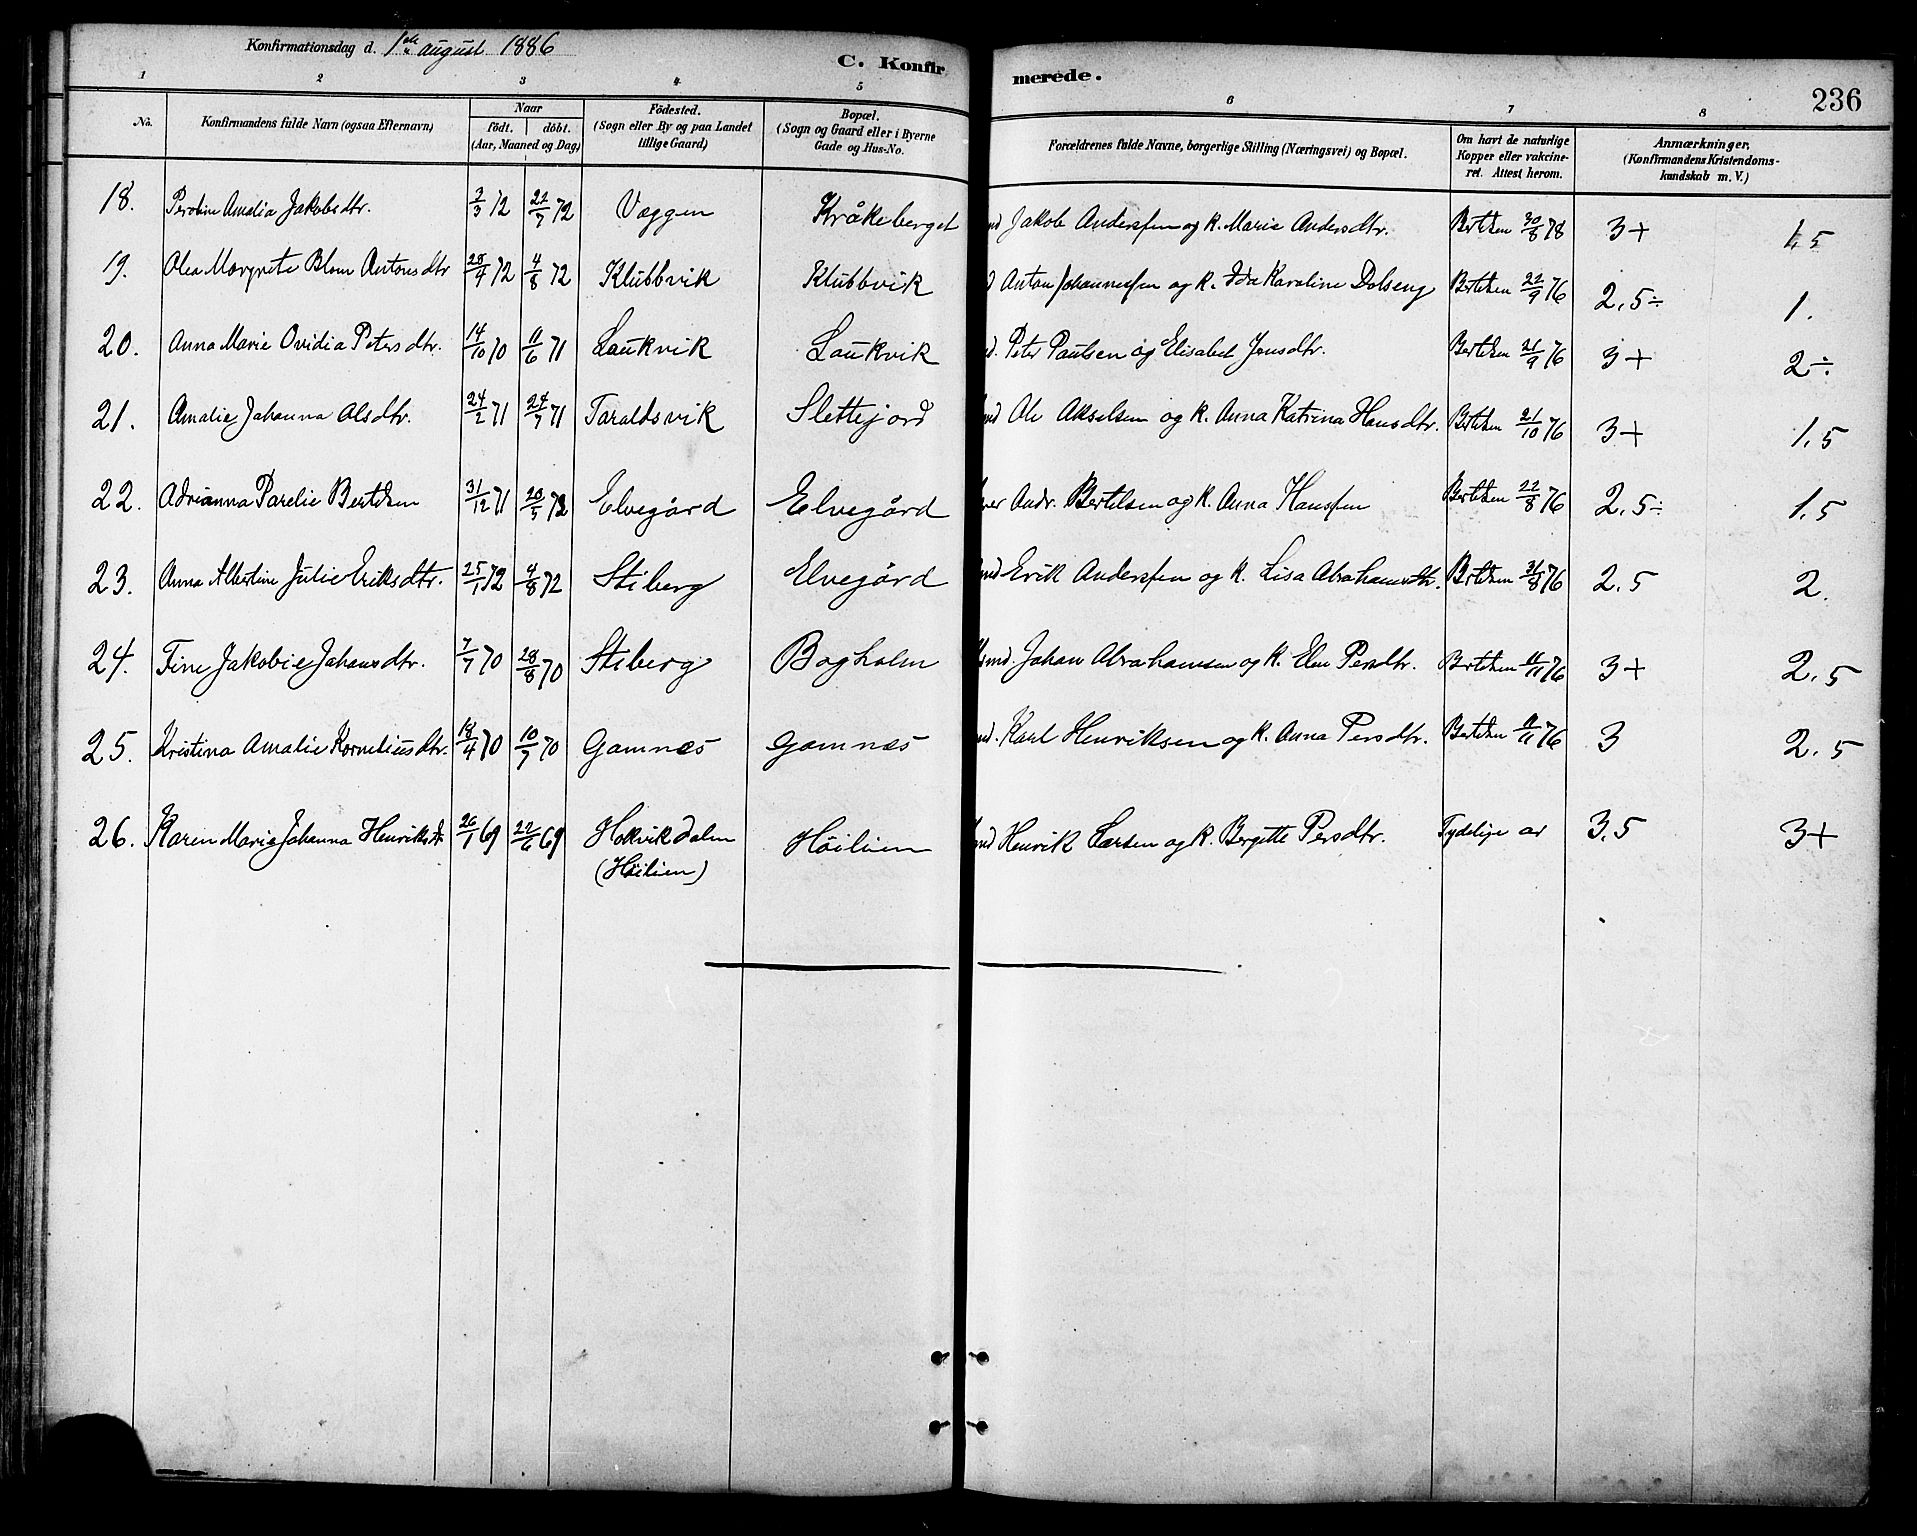 Konfirmationsdag d. 1ste august 1886
C. Konfirmerede.
236
1 2 3 4 5 6 7 8
No. Konfirmandens fulde Navn (ogsaa Efternavn) Naar født. døbt. (Aar, Maaned og Dag) Födested. (Sogn eller By og paa Landet tillige Gaard) Bopæl. (Sogn og Gaard eller i Byerne Gade og Hus-No. Forældrenes fulde Navne, borgerlige Stilling (Næringsvei) og Bopæl. Om havt de naturlige Kopper eller vakcineret. Attest herom. Anmærkninger, (Konfirmandens Kristendomskundskab m. V.)
18. Peroline Amalia Jakobsdtr. 3/3 72 22/7 72 Væggen Kråkeberget Jakob Andersen og k. Marie Andersdtr. Bertelsen 30/8 78 3+ 1,5
19. Olea Margrete Blom Antonsdtr 28/4 72 4/8 72 Klubbvik Klubbvik Anton Johannessen og k. Ida Karoline Dolseng Bertelsen 22/9 76 2.5÷ 1.
20. Anna Marie Ovidia Petersdtr. 14/10 70 11/6 71 Laukvik Laukvik Peter Paulsen og Elisabet Jensdtr. Bertelsen 21/9 76 3+ 2÷
21. Amalie Johanna Olsdtr. 24/2 71 24/7 71 Taraldsvik Slettejord Ole Akselsen og k. Anna Katrina Hansdtr. Bertelsen 21/10 76 3+ 1,5
22. Adrianna Parelie Bertelsen 31/12 71 20/5 72 Elvegård Elvegård Andr. Bertelsen og k. Anna Hanssen Bertelsen 22/8 76 2.5÷ 1.5
23. Anna Albertine Julie Eriksdtr. 25/1 72 4/8 72 Stiberg Elvegård Erik Andersen og k. Lisa Abrahamsdtr. Bertelsen 31/8 76 2.5 2.
24. Fine Jakobie Johansdtr. 7/7 70 28/8 70 Stiberg Bogholm Johan Abrahamsen og k. Elen Persdtr. Bertelsen 11/11 76 3+ 2.5
25. Kristina Amalie Korneliusdtr. 18/4 70 10/7 70 Gamnes Gamnes Karl Henriksen og k. Anna Persdtr. Bertelsen 11/11 76 3 2.5
26. Karen Marie Johanna Henriksdtr 26/1 69 22/6 69 Hokvikdalen Høilien Henrik Larsen og k. Bergitte Persdtr. Tydelige ar 3.5 3+
(Høilien)